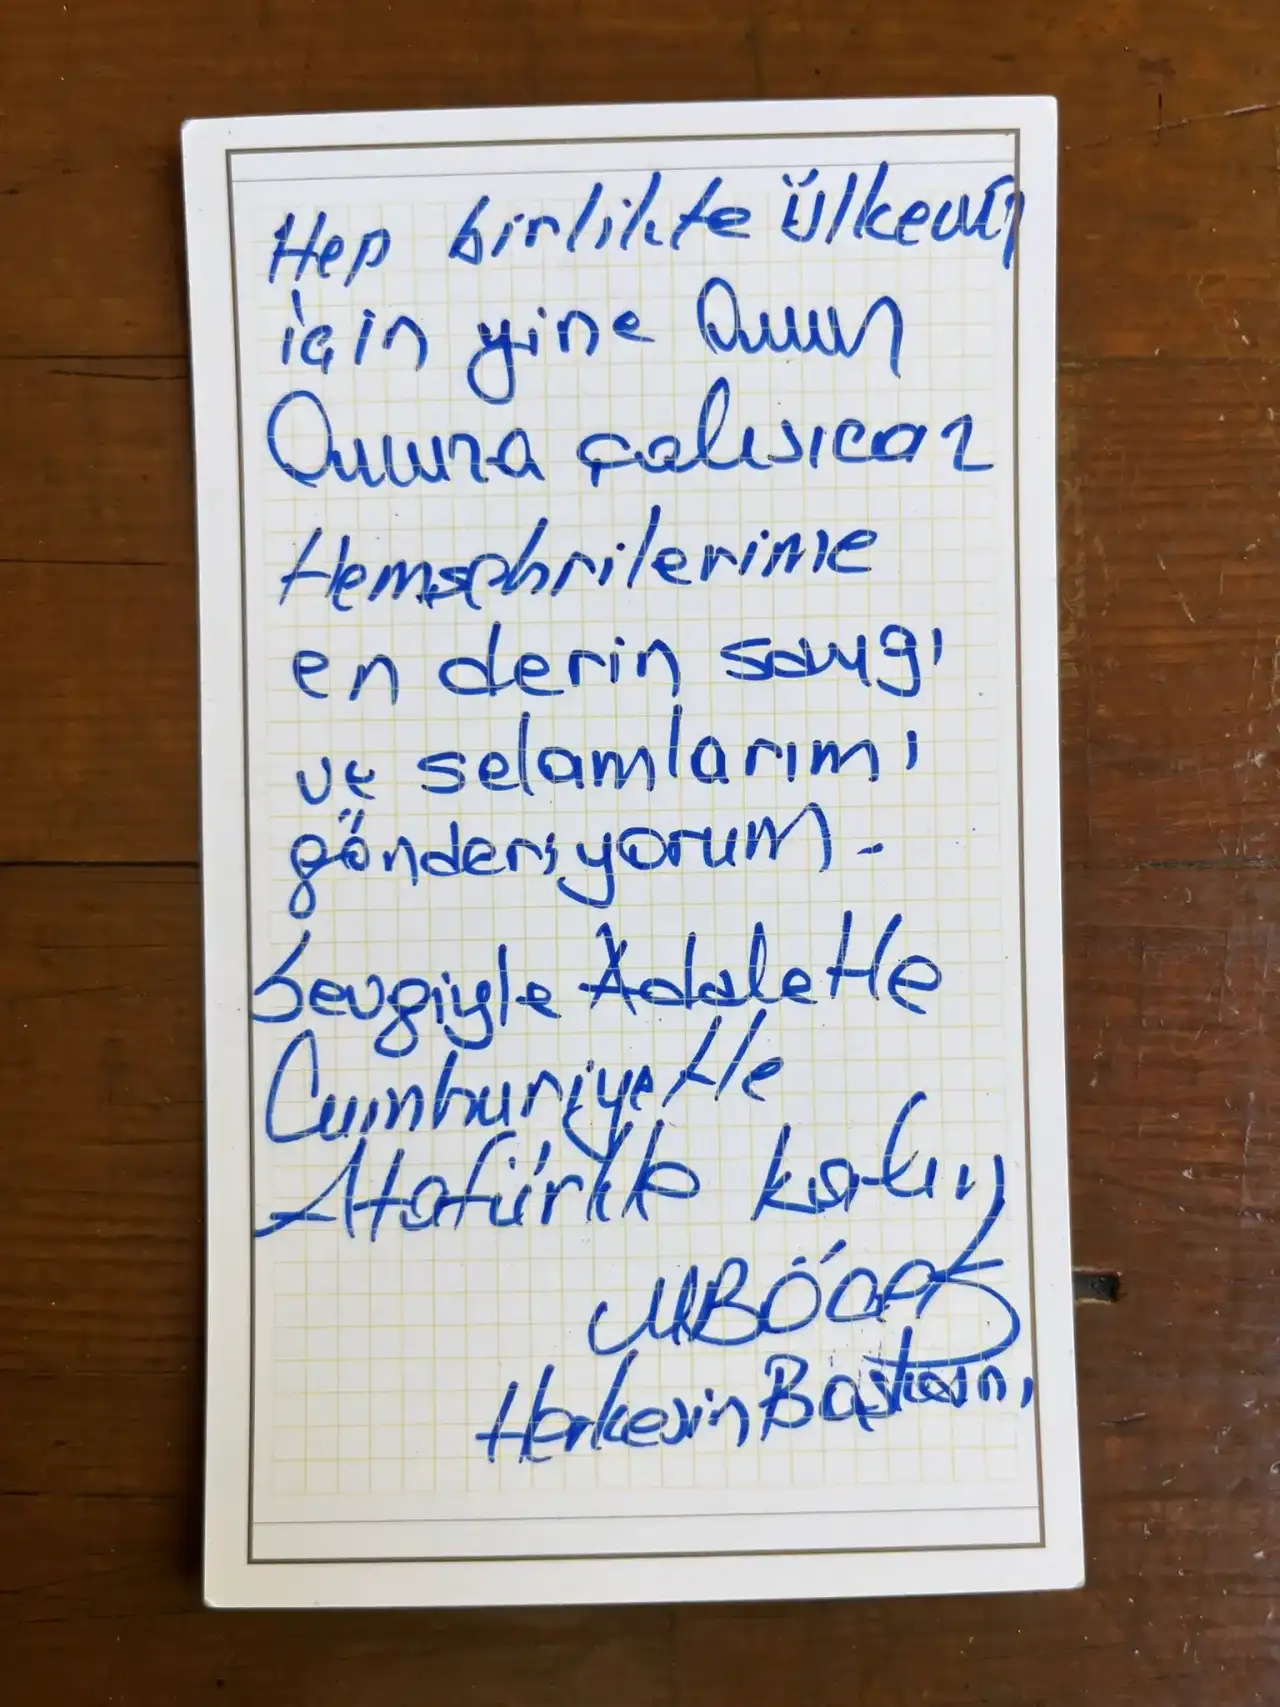 Hep birlikte ülkemiz
için yine Omuz
Omuza çalışıcaz
Hemşehrilerime
en derin saygı
ve selamlarımı
gönderiyorum.
Sevgiyle Adaletle
Cumhuriyetle
Atatürkle kalın
MBÖcek
Herkesin Başkanı